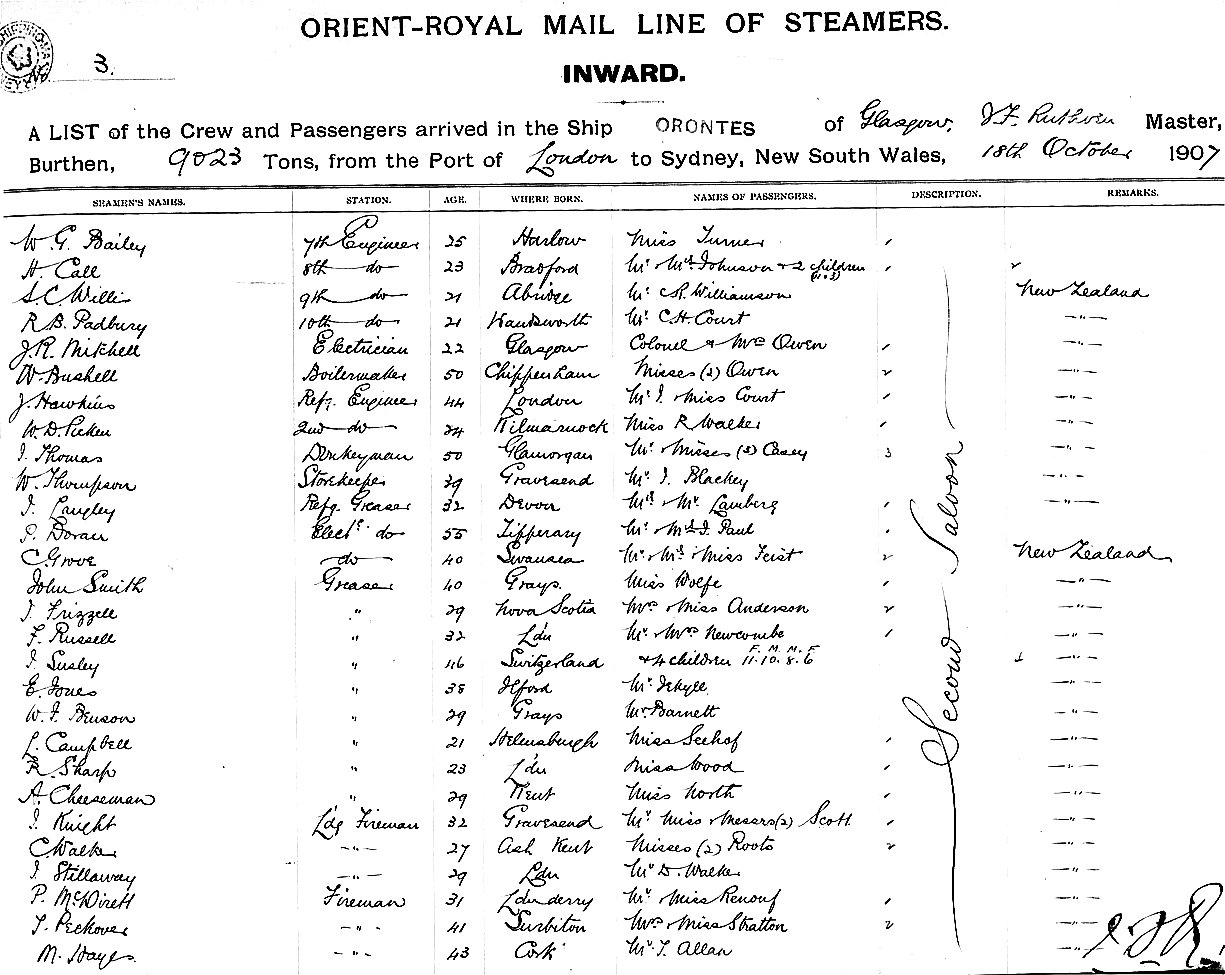 3.
ORIENT-ROYAL MAIL LINE OF STEAMERS.
INWARD.
A LIST of the Crew and Passengers arrived in the Ship ORONTES of Glasgow, J F. Ruthven Master,
Burthen, 9023 Tons, from the Port of London to Sydney, New South Wales, 18th October 1907
SEAMEN'S NAMES. STATION. AGE. WHERE BORN. NAMES OF PASSENGERS. DESCRIPTION. REMARKS.
W. G. Bailey 7th Engineer 25 Harlow Miss Turner
H. Call 8th do 23 Bradford Mr Mrs Johnson & 2 children
S.C. Willis 9th do 21 Abridge Mr C.R. Williamson New Zealand
R.B. Padbury 10th do 21 Wandsworth Mr C.H. Court —"—
J.R. Mitchell Electrician 22 Glasgow Colonel & Mrs Owen —"—
W. Bushell Boilermaker 50 Chippenham Misses (2) Owen —"—
J. Hawkins Refg. Engineer 44 London Mr J. Miss Court —"—
W. D. Picken 2nd do 24 Kilmarnock Miss R Walker —"—
J. Thomas Donkeyman 50 Glamorgan Mr Misses (2) Casey 3 —"—
W. Thompson Storekeeper 39 Gravesend Mr J. Blackey —"—
J. Langley Refg. Greaser 32 Devon Mrs Mr Lamberg —"—
P. Doran Elect. do 55 Tipperary Mr Mrs J. Paul
C. Grove do 40 Swansea Mr Mrs Miss Feist 2 New Zealand
John Smith Greaser 40 Grays Miss Wolfe —"—
J. Frizzell " 29 Nova Scotia Mrs & Miss Anderson 2 —"—
F. Russell " 32 Ldn Mr Mrs Newcombe —"—
J. Susley " 46 Switzerland & 4 children F. M. M. F 11. 10. 8. 6 —"—
E. Jones " 38 Ilford Mr Jekyll —"—
W. J. Benson " 29 Grays Mr Barnett —"—
L. Campbell " 21 Helensburgh Miss Seehof —"—
R. Sharp " 23 Ldn Miss Wood —"—
A. Cheeseman " 29 Kent Miss North —"—
J. Knight Ldg Fireman 32 Gravesend Mr Miss & Messrs (2) Scott —"—
C. Walker —"— 27 Ash Kent Misses (2) Roots 2 —"—
J. Stillaway —"— 29 Ldn Mr D. Walker —"—
P. Fireman 31 Ldnderry Mr Miss Renouf —"—
T. Peckover —"— 41 Surbiton Mrs Miss Stratton 2 —"—
M. Hayes —"— 43 Cork Mr T. Allan —"—
Second Saloon